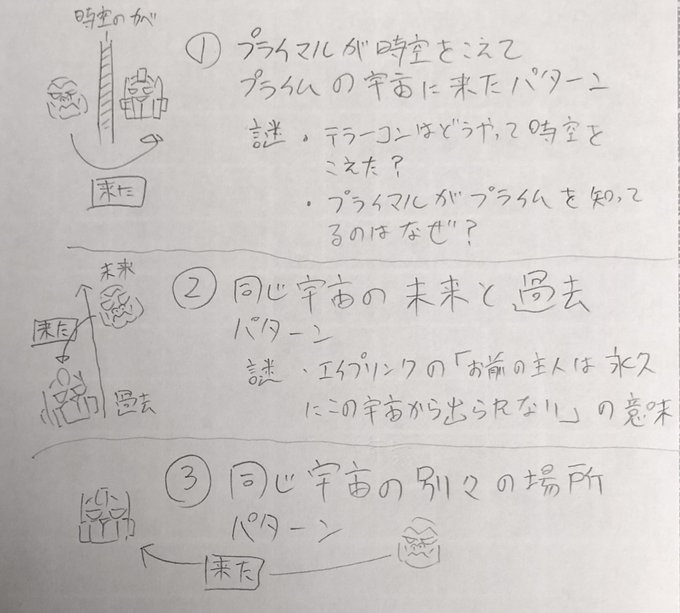 時空のカベ
① プライマルが時空をこえて
プライムの宇宙に来たパターン
謎・テラーコンはどうやって時空を
こえた?
・プライマルがプライムを知って
るのはなぜ?
来た
② 同じ宇宙の未来と過去
パターン
謎・エイプリンクの「お前の主人は永久
にこの宇宙から出られない!」の意味
未来
来た
過去
③ 同じ宇宙の別々の場所
パターン
来た